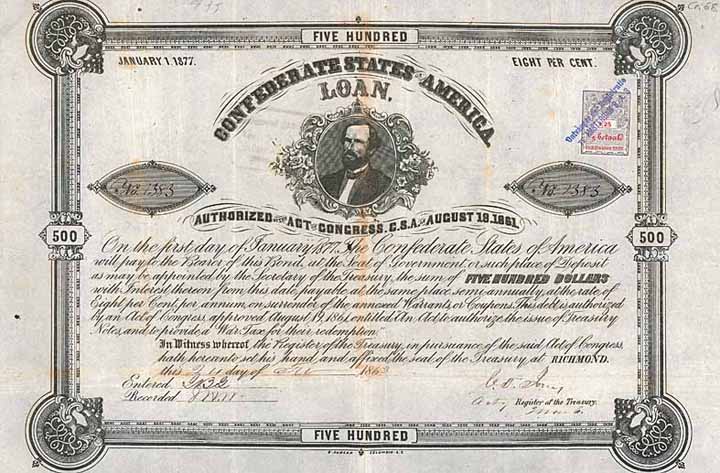 FIVE HUNDRED
JANUARY 1, 1877.
EIGHT PER CENT.
CONFEDERATE STATES OF AMERICA
LOAN,
25
No 1383
No 1383
AUTHORIZED BY ACT OF CONGRESS, C.S.A. OF AUGUST 19. 1861.
500
500
On the first day of January 1877, the Confederate States of America
will pay to the Bearer of this Bond, at the Seat of Government, or such place of Deposit
as may be appointed by the Secretary of the Treasury, the sum of FIVE HUNDRED DOLLARS
with Interest thereon from this date, payable at the same place semi-annually, at the rate of
Eight per Cent, per annum, on surrender of the annexed Warrants or Coupons. This debt is authorized
by an Act of Congress approved August 19, 1861, entitled "An Act to authorize the issue of Treasury
Notes, and to provide a War Tax for their redemption."
In Witness whereof, the Register of the Treasury, in pursuance of the said Act of Congress,
hath hereunto set his hand, and affixed the seal of the Treasury, at RICHMOND.
this day of 1863
Entered
Recorded
Register of the Treasury.
FIVE HUNDRED
COLUMBIA S.C.